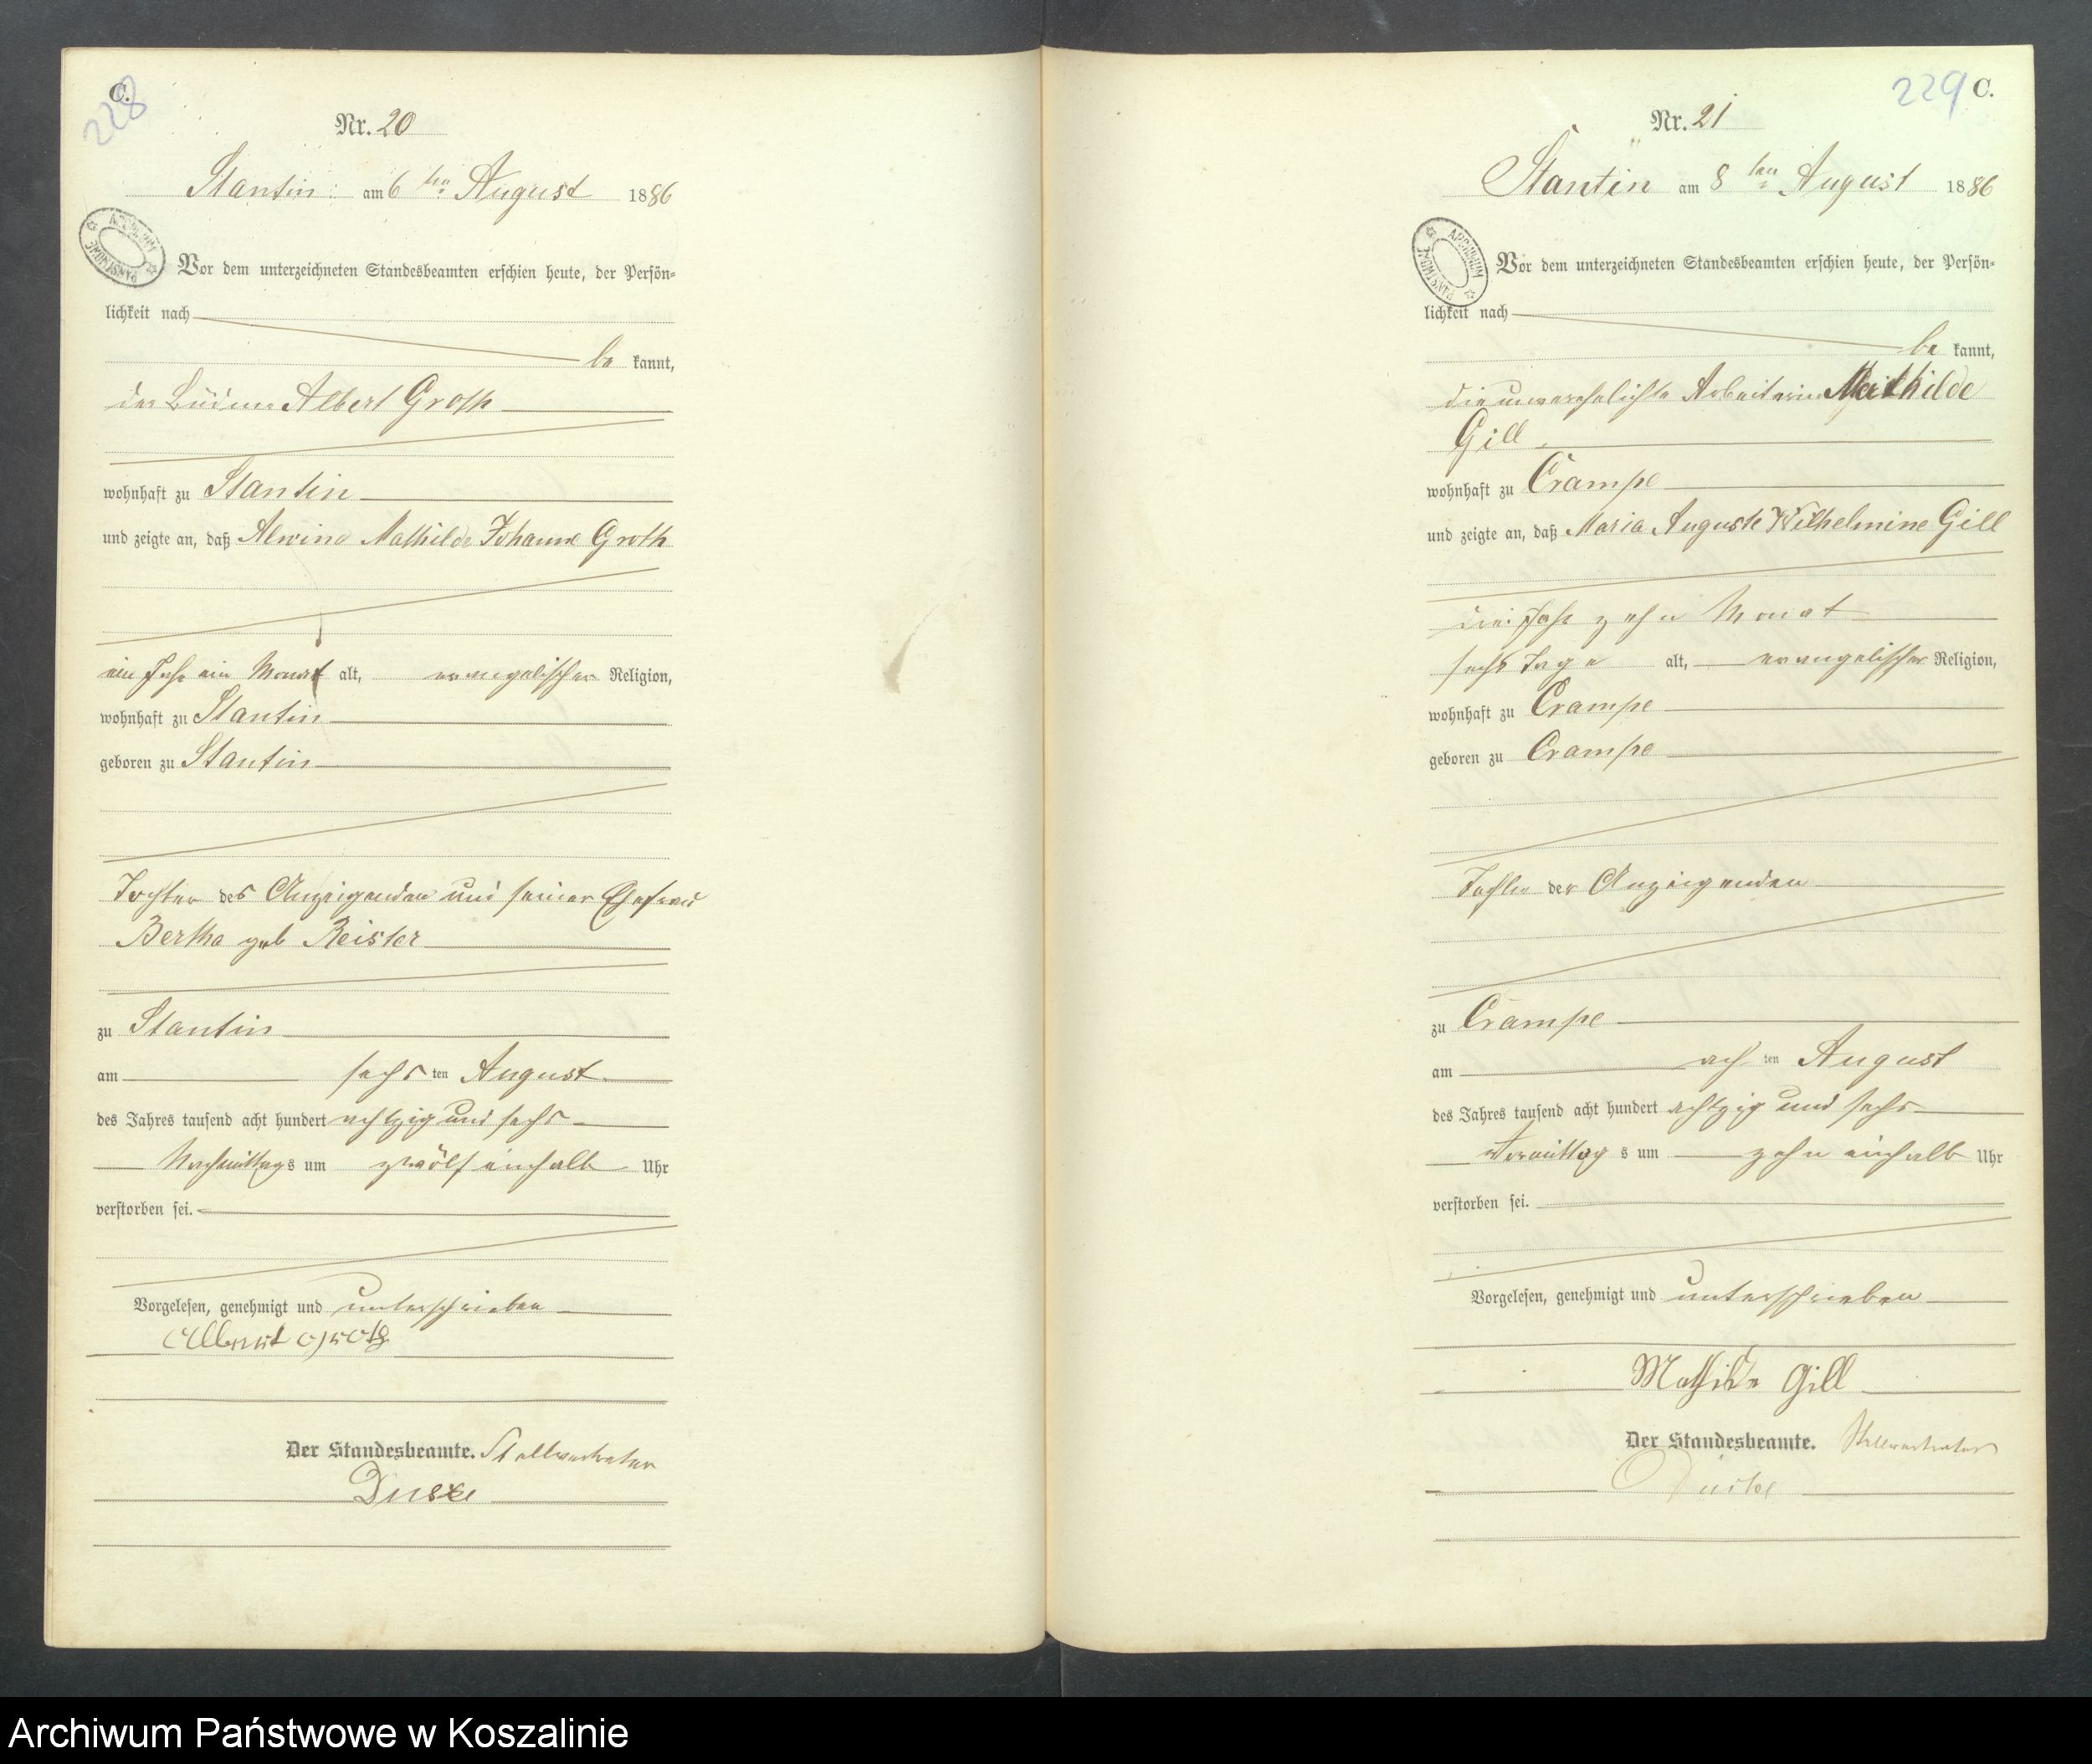 C.
228
Nr. 20
Stantin am 6ten August 1886
ARCHIWUM PAŃSTWOWE
Vor dem unterzeichneten Standesbeamten erschien heute, der Persön-
lichkeit nach
be kannt,
der Büdner Albert Groth
wohnhaft zu Stantin
und zeigte an, daß Alwine Mathilde Johanne Groth
ein Jahr ein Monat alt, evangelischer Religion,
wohnhaft zu Stantin
geboren zu Stantin
Tochter des Anzeigenden und seiner Ehefrau
Bertha geb Reister
zu Stantin
am sechs ten August
des Jahres tausend acht hundert achtzig und sechs
Nachmittags um zwölf einhalb Uhr
verstorben sei.
Vorgelesen, genehmigt und unterschrieben
Albert Groth
Der Standesbeamte. Stellvertreter
229 C.
Nr. 21
Stantin am 8ten August 1886
ARCHIWUM PAŃSTWOWE
Vor dem unterzeichneten Standesbeamten erschien heute, der Persön-
lichkeit nach
be kannt,
die unverehelichte Arbeiterin Mathilde
Gill
wohnhaft zu Crampe
und zeigte an, daß Maria Auguste Wilhelmine Gill
drei Jahr zehn Monat
sechs Tage alt, evangelischer Religion,
wohnhaft zu Crampe
geboren zu Crampe
Tochter der Anzeigenden
zu Crampe
am ach ten August
des Jahres tausend acht hundert achtzig und sechs
Vormittag s um zehn einhalb Uhr
verstorben sei.
Vorgelesen, genehmigt und unterschrieben
Mathilde Gill
Der Standesbeamte. Stellvertreter
Archiwum Państwowe w Koszalinie